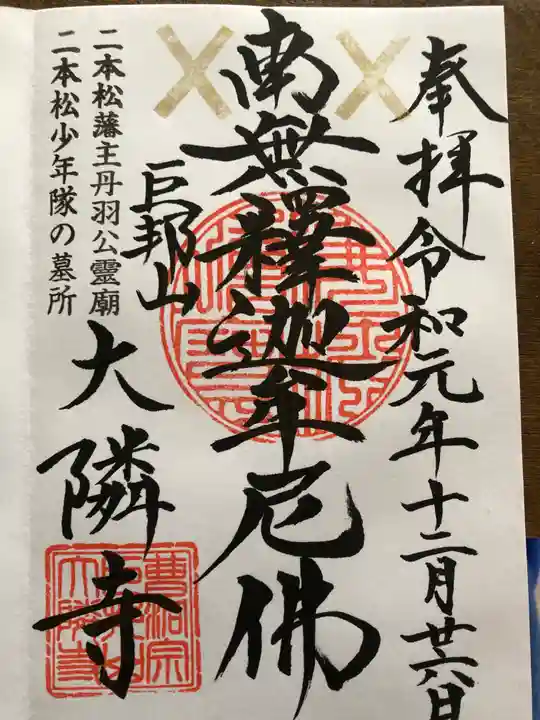 奉拝令和元年十二月廿六日
南無釋迦牟尼佛
巨邦山
大隣寺
二本松藩主丹羽公霊廟
二本松少年隊の墓所
曹洞宗
大隣寺